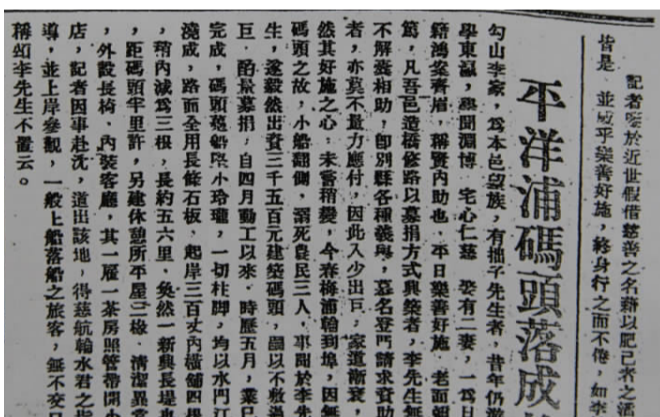 記者案於近世假借慈善之名藉以肥己者之
皆是 並感乎樂善好施，終身行之而不倦，如李
平洋浦碼頭落成
勾山李家，為本邑望族，有拙子先生者，昔年仍游
學東瀛，熟聞淵博 宅心仁慈 娶有二妻，一為日
籍鴻案齊眉，稱賢內助也 平日樂善好施 老而彌
篤，凡吾邑造橋修路以募捐方式興築者，李先生無
不解囊相助，即別縣各種義舉，慕名登門請求資助
者，亦莫不量力應付，因此入少出巨，家道漸衰，
然其好施之心，未嘗稍變，今春梅浦輪到埠，因無
碼頭之故，小船翻側，溺死農民三人，事聞於李先
生，遂毅然出資三千五百元建築碼頭，嗣以不敷過
巨，酌量募捐，自四月動工以來，時歷五月，業已
完成，碼頭躉船界小玲瓏，一切柱腳，均以水門汀
澆成，路面全用長條石板，起岸三百丈內橫舖四
，稍內減為三根，長約五六里，煥然一新興長堤
，距碼頭半里許，另建休憩所平屋三椽，清潔異
，外設長椅，內裝客廳，其一雇一茶房照管帶開小
店，記者因事赴沈，道出該地，得慈航輪水君之指
導，並上岸參觀，一般上船落船之旅客，無不交口
稱頌李先生不置云。